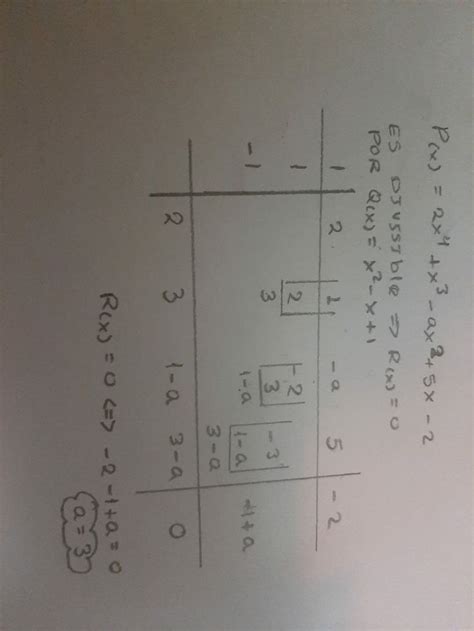 P(x) = 2x⁴ + x³ - ax² + 5x - 2
ES DIVISIBLE => R(x) = 0
POR Q(x) = x² - x + 1
1 2 1 -a 5 -2
1 2 -2
3 3 -3
-1 1-a 1-a -1+a
3-a
2 3 1-a 3-a 0
R(x) = 0 <=> -2 -1 + a = 0
a = 3